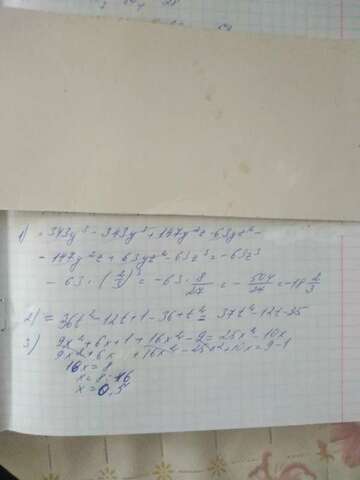 1) = 343y³ - 343y³ + 147y²z - 63yz² -
- 147y²z + 63yz² - 63z³ = -63z³
- 63 · (2/3)³ = -63 · 8/27 = - 504/27 = -18 2/3
2) = 36t² - 12t + 1 - 36 + t² = 37t² - 12t - 35
3) 9x² + 6x + 1 + 16x² - 9 = 25x² - 10x
9x² + 6x + 16x² - 25x² + 10x = 9 - 1
16x = 8
x = 8 : 16
x = 0,5